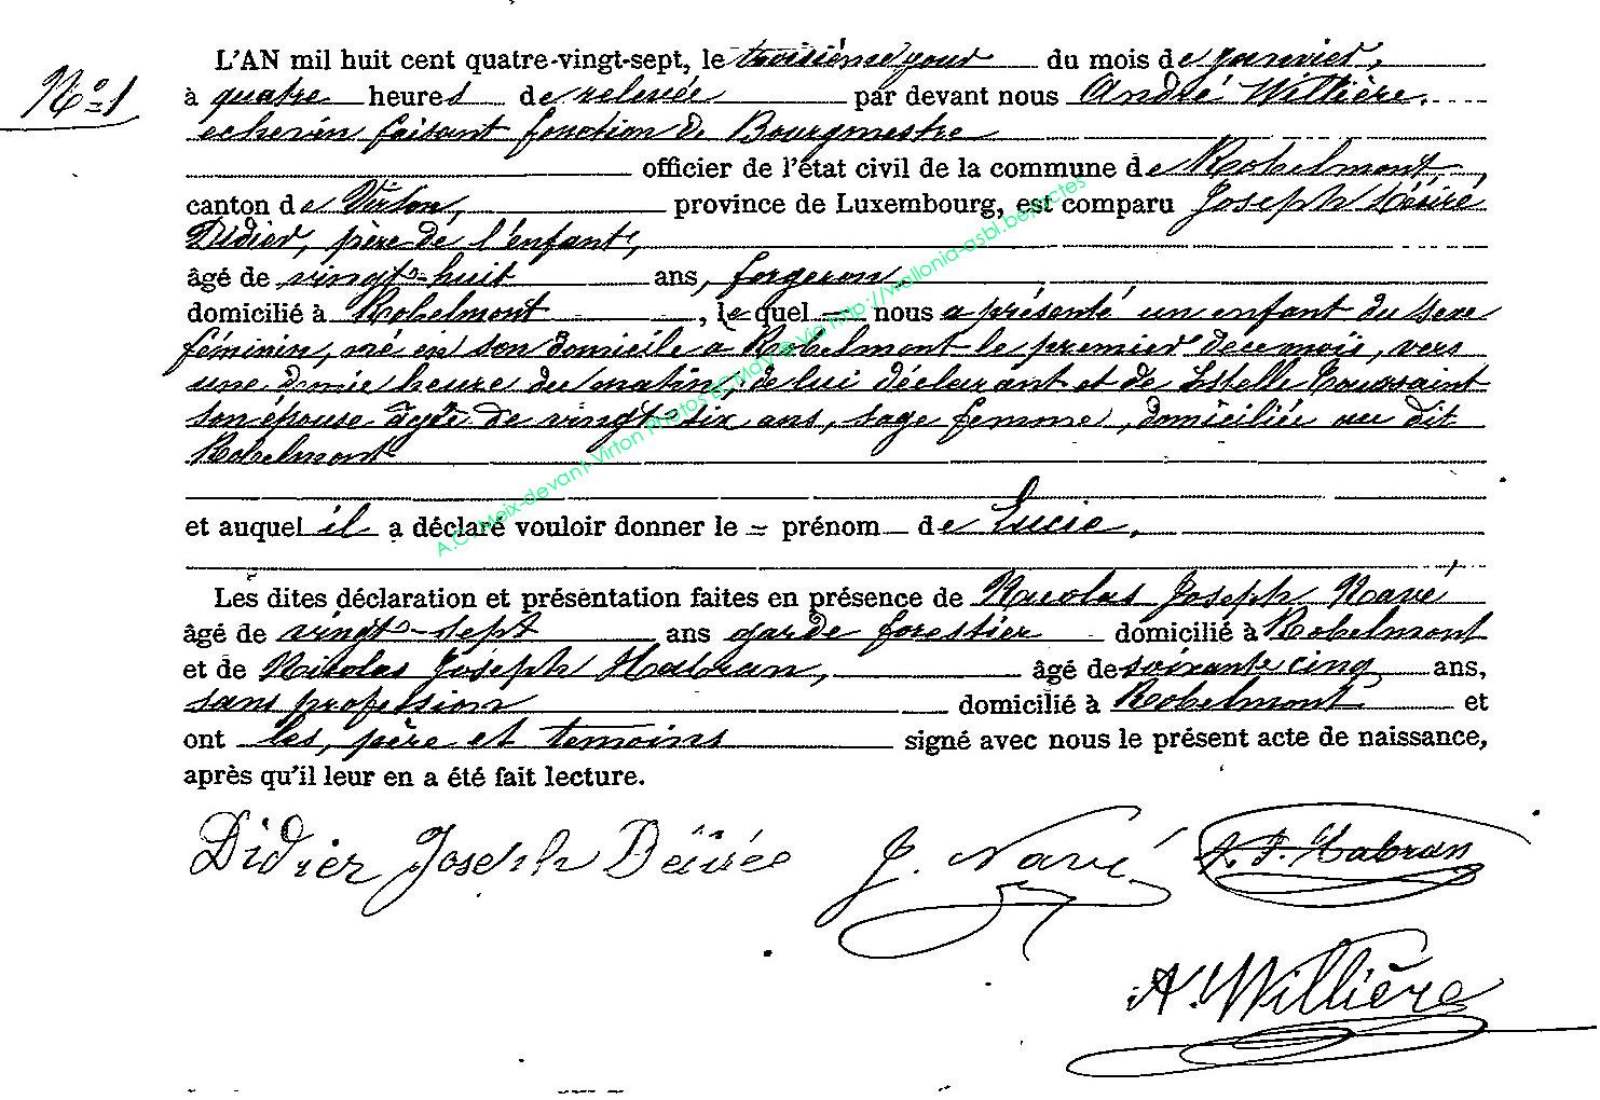 L'AN mil huit cent quatre-vingt-sept, le troisième jour du mois de janvier,
N° 1
à quatre heures de relevée par devant nous André Willière,
echevin faisant fonction de Bourgmestre
officier de l'état civil de la commune de Robelmont,
canton de Virton, province de Luxembourg, est comparu Joseph Désiré
Didier, père de l'enfant,
âgé de vingt-huit ans, forgeron
domicilié à Robelmont, le quel nous a présenté un enfant du sexe
féminin, né en son domicile a Robelmont le premier de ce mois, vers
une demie heure du matin, de lui déclarant et de Estelle Toussaint
son épouse agée de vingt six ans, sage femme, domiciliée au dit
Robelmont
et auquel il a déclaré vouloir donner le = prénom de Lucie,
Les dites déclaration et présentation faites en présence de Nicolas Joseph Navé
âgé de vingt-sept ans garde forestier domicilié à Robelmont
et de Nicolas Joseph Habran, âgé de soixante cinq ans,
sans profession domicilié à Robelmont et
ont les, père et temoins signé avec nous le présent acte de naissance,
après qu'il leur en a été fait lecture.
Didier Joseph Désirée J. Navé J. Habran
A. Willière
A.C. Meix-devant-Virton Photos EC MdV @ via http://wallonia-asbl.be/actes